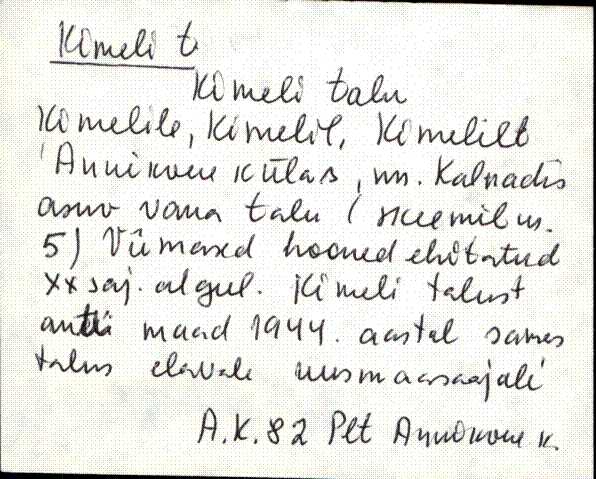 Kimeli t.
Kimeli talu
Kimelile, Kimelil, Kimelilt
Annikvere külas, nn. Kalnadis
asuv vana talu (skeemil nr.
5) Viimased hooned ehitatud
XX saj. algul. Kimeli talust
anti maad 1944. aastal samas
talus elavale uusmaasaajale
A.K. 82 Plt Annikvere k.